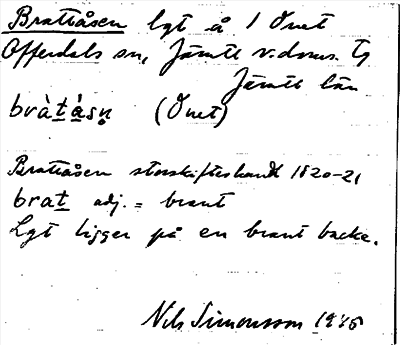 Brattåsen lgt å 1 Önet
Offerdals sn, Jämtl. v. doms. Tg
Jämtl. län
bràt̲á̲sṇ (Önet)
Brattåsen storskifteshandl 1820-21
brat̲ adj. = brant
Lgt ligger på en brant backe.
Nils Simonsson 1945